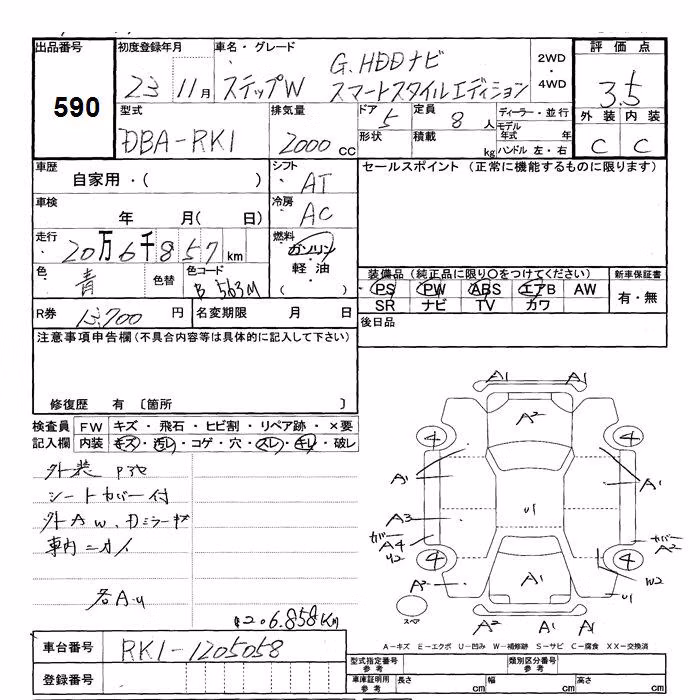 出品番号
590
初度登録年月
23 11月
車名・グレード
G.HDDナビ
ステップW スマートスタイルエディション
2WD
・
4WD
評価点
3.5
外装 内装
C C
型式
DBA-RK1
排気量
2000cc
ドア 5
定員 8人
形状
積載 kg
ディーラー・並行
モデル年式 年
ハンドル 左・右
車歴
自家用・( )
シフト
AT
セールスポイント (正常に機能するものに限ります)
車検
年 月( 日)
冷房
AC
走行
20万6千857km
燃料
ガソリン
・
軽油
( )
色
青
色替
色コード
B 563M
装備品 (純正品に限り○をつけてください)
PS PW ABS エアB AW
SR ナビ TV カワ
新車保証書
有・無
R券 13,700円
名変期限 月 日
後日品
注意事項申告欄(不具合内容等は具体的に記入して下さい)
修復歴 有 〔箇所 〕
検査員記入欄
FW キズ・飛石・ヒビ割・リペア跡・×要
内装 キズ・汚レ・コゲ・穴・スレ・キレ・破レ
外装
シートカバー付
外AW、Dミラーキズ
車内
各A・U
206.858Km
A1 A1
A2
4 4
A1 A1
A3
U1
ガー
A4
U2
カバー
A2
4 4
A2
A1
W2
U1
スペア
A2 A1 A1
A－キズ E－エクボ U－凹み W－補修跡 S－サビ C－腐食 XX－交換済
車台番号
RK1-1205058
登録番号
型式指定番号
参考
類別区分番号
参考
車庫証明用
参考
長さ cm
幅 cm
高さ cm